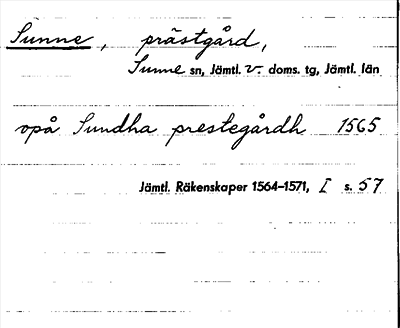 Sunne, prästgård,
Sunne sn, Jämtl. v. doms. tg, Jämtl. län
opå Sundha prestegårdh 1565
Jämtl. Räkenskaper 1564–1571, I s. 57